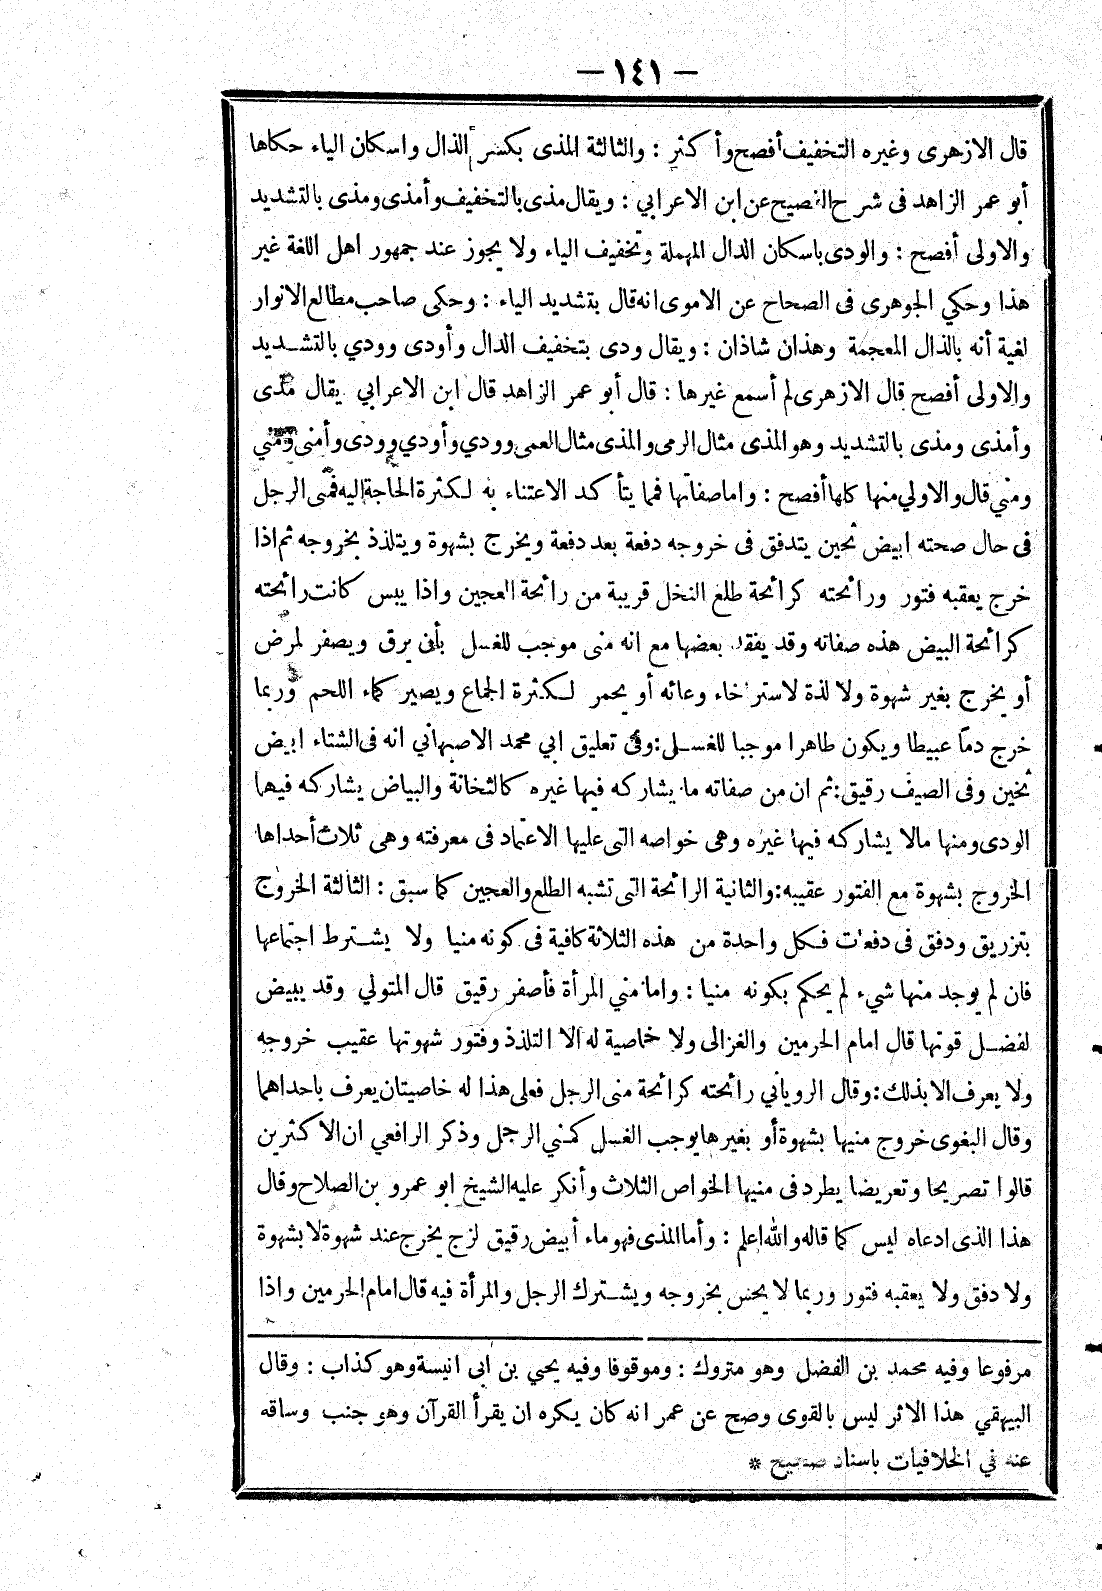 — ١٤١ —
قال الازهرى وغيره التخفيف أفصح وأكثر : والثالثة المذى بكسر الذال واسكان الياء حكاها
أبو عمر الزاهد فى شرح الفصيح عن ابن الاعرابي : ويقال مذى بالتخفيف وأمذى ومذى بالتشديد
والاولى أفصح : والودى باسكان الدال المهملة وتخفيف الياء ولا يجوز عند جمهور اهل اللغة غير
هذا وحكي الجوهرى فى الصحاح عن الاموى انه قال بتشديد الياء : وحكى صاحب مطالع الانوار
لغية أنه بالذال المعجمة وهذان شاذان : ويقال ودى بتخفيف الدال وأودى وودي بالتشديد
والاولى أفصح قال الازهرى لم أسمع غيرها : قال أبو عمر الزاهد قال ابن الاعرابي يقال مذى
وأمذى ومذى بالتشديد وهو المذى مثال الرمى والمذى مثال العمى وودي وأودي وودى وأمنى ومني
ومني قال والاولي منها كلها أفصح : واما صفاتها فمما يتأكد الاعتناء به لكثرة الحاجة اليه فمنى الرجل
فى حال صحته ابيض ثخين يتدفق فى خروجه دفعة بعد دفعة ويخرج بشهوة ويتلذذ بخروجه ثم اذا
خرج يعقبه فتور ورائحته كرائحة طلع النخل قريبة من رائحة العجين واذا يبس كانت رائحته
كرائحة البيض هذه صفاته وقد يفقد بعضها مع انه منى موجب للغسل بأن يرق ويصفر لمرض
أو يخرج بغير شهوة ولا لذة لاسترخاء وعائه أو يحمر لكثرة الجماع ويصير كماء اللحم وربما
خرج دما عبيطا ويكون طاهرا موجبا للغسل : وفى تعليق ابي محمد الاصبهاني انه فى الشتاء ابيض
ثخين وفى الصيف رقيق : ثم ان من صفاته ما يشاركه فيها غيره كالثخانة والبياض يشاركه فيهما
الودى ومنها مالا يشاركه فيها غيره وهى خواصه التى عليها الاعتماد فى معرفته وهى ثلاث أحداها
الخروج بشهوة مع الفتور عقيبه : والثانية الرائحة التى تشبه الطلع والعجين كما سبق : الثالثة الخروج
بتزريق ودفق فى دفعات فكل واحدة من هذه الثلاثة كافية فى كونه منيا ولا يشترط اجتماعها
فان لم يوجد منها شيء لم يحكم بكونه منيا : واما مني المرأة فأصفر رقيق قال المتولي وقد يبيض
لفضل قوتها قال امام الحرمين والغزالى ولا خاصية له الا التلذذ وفتور شهوتها عقيب خروجه
ولا يعرف الا بذلك : وقال الروياني رائحته كرائحة منى الرجل فعلى هذا له خاصيتان يعرف باحداهما
وقال البغوى خروج منيها بشهوة أو بغيرها يوجب الغسل كمني الرجل وذكر الرافعي ان الاكثرين
قالوا تصريحا وتعريضا يطرد فى منيها الخواص الثلاث وأنكر عليه الشيخ ابو عمرو بن الصلاح وقال
هذا الذى ادعاه ليس كما قاله والله اعلم : وأما المذى فهو ماء أبيض رقيق لزج يخرج عند شهوة لا بشهوة
ولا دفق ولا يعقبه فتور وربما لا يحس بخروجه ويشترك الرجل والمرأة فيه قال امام الحرمين واذا
مرفوعا وفيه محمد بن الفضل وهو متروك : وموقوفا وفيه يحيي بن ابى انيسة وهو كذاب : وقال
البيهقي هذا الاثر ليس بالقوى وصح عن عمر انه كان يكره ان يقرأ القرآن وهو جنب وساقه
عنه في الخلافيات باسناد صحيح *